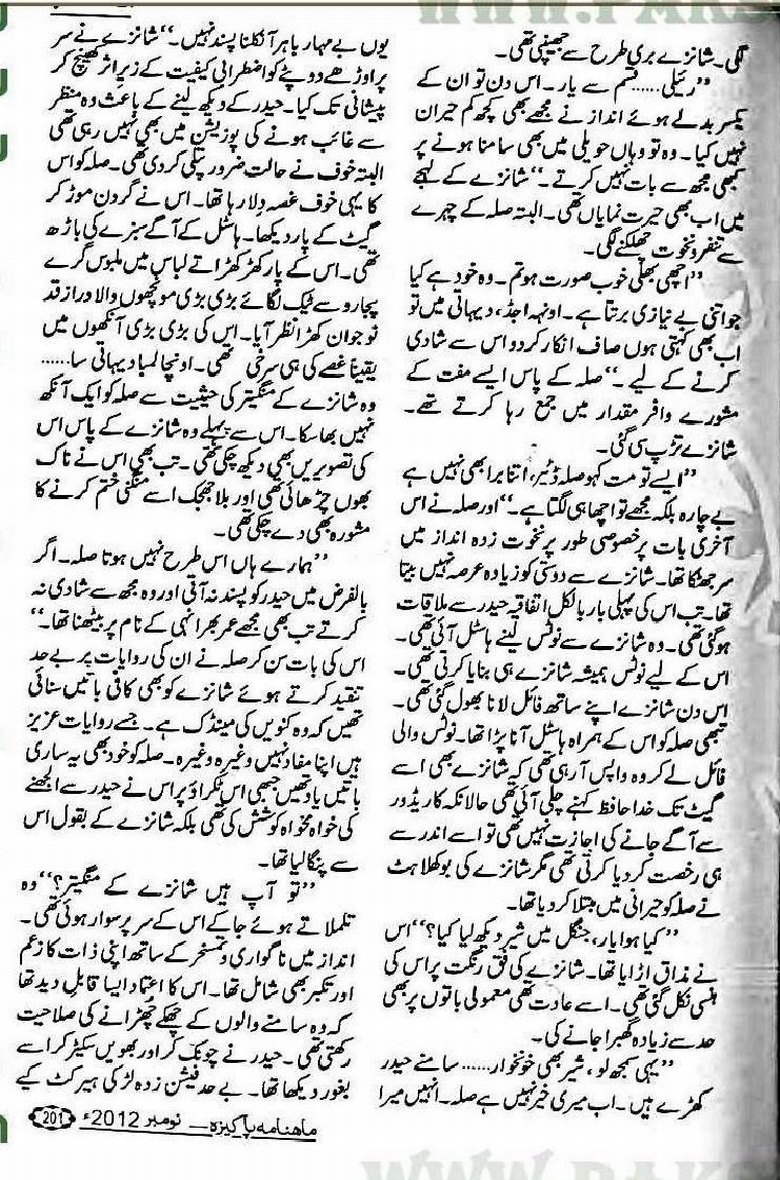 لگی۔ شانزے بری طرح سے جھینپی تھی۔
”رئیلی......قسم سے یار۔ اس دن تو ان کے
یکسر بدلے ہوئے انداز نے مجھے بھی کچھ کم حیران
نہیں کیا۔ وہ تو وہاں حویلی میں بھی سامنا ہونے پر
کبھی مجھ سے بات نہیں کرتے۔“ شانزے کے لہجے
میں اب بھی حیرت نمایاں تھی۔ البتہ صلہ کے چہرے
سے تنفر و نخوت چھلکنے لگی۔
”اچھی بھلی خوب صورت ہو تم۔ وہ خود ہے کیا
جو اتنی بے نیازی برتتا ہے۔ اونہہ اجڈ، دیہاتی میں تو
اب بھی کہتی ہوں صاف انکار کردو اس سے شادی
کرنے کے لیے۔“ صلہ کے پاس ایسے مفت کے
مشورے وافر مقدار میں جمع رہا کرتے تھے۔
شانزے تڑپ سی گئی۔
”ایسے تو مت کہو صلہ ڈئیر، اتنا برا بھی نہیں ہے
بے چارہ بلکہ مجھے تو اچھا ہی لگتا ہے۔“ اور صلہ نے اس
آخری بات پر خصوصی طور پر نخوت زدہ انداز میں
سر جھٹکا تھا۔ شانزے سے دوستی کو زیادہ عرصہ نہیں بیتا
تھا۔ تب اس کی پہلی بار بالکل اتفاقیہ حیدر سے ملاقات
ہوگئی تھی۔ وہ شانزے سے نوٹس لینے ہاسٹل آئی تھی۔
اس کے لیے نوٹس ہمیشہ شانزے ہی بنایا کرتی تھی۔
اس دن شانزے اپنے ساتھ فائل لانا بھول گئی تھی۔
تبھی صلہ کو اس کے ہمراہ ہاسٹل آنا پڑا تھا۔ نوٹس والی
فائل لے کر وہ واپس آرہی تھی کہ شانزے بھی اسے
گیٹ تک خدا حافظ کہنے چلی آئی تھی حالانکہ کاریڈور
سے آگے جانے کی اجازت نہیں تھی تو اسے اندر سے
ہی رخصت کردیا کرتی تھی مگر شانزے کی بوکھلاہٹ
نے صلہ کو حیرانی میں مبتلا کردیا تھا۔
”کیا ہوا یار، جنگل میں شیر دیکھ لیا کیا؟“ اس
نے مذاق اڑایا تھا۔ شانزے کی فق رنگت پر اس کی
ہنسی نکل گئی تھی۔ اسے عادت تھی معمولی باتوں پر بھی
حد سے زیادہ گھبرا جانے کی۔
”یہی سمجھ لو، شیر بھی خونخوار...... سامنے حیدر
کھڑے ہیں۔ اب میری خیر نہیں ہے صلہ۔ انہیں میرا
یوں بے مہار باہر آنکلنا پسند نہیں۔“ شانزے نے سر
پر اوڑھے دوپٹے کو اضطرابی کیفیت کے زیر اثر کھینچ کر
پیشانی تک کیا۔ حیدر کے دیکھ لینے کے باعث وہ منظر
سے غائب ہونے کی پوزیشن میں بھی نہیں رہی تھی
البتہ خوف نے حالت ضرور پتلی کردی تھی۔ صلہ کو اس
کا یہی خوف غصہ دلا رہا تھا۔ اس نے گردن موڑ کر
گیٹ کے پار دیکھا۔ ہاسٹل کے آگے سبزے کی باڑھ
تھی۔ اس کے پار کھڑکھڑاتے لباس میں ملبوس گرے
پجارو سے ٹیک لگائے بڑی بڑی مونچھوں والا دراز قد
نوجوان کھڑا نظر آیا۔ اس کی بڑی بڑی آنکھوں میں
یقیناً غصے کی ہی سرخی تھی۔ اونچا لمبا دیہاتی سا......
وہ شانزے کے منگیتر کی حیثیت سے صلہ کو ایک آنکھ
نہیں بھا سکا۔ اس سے پہلے وہ شانزے کے پاس اس
کی تصویریں بھی دیکھ چکی تھی۔ تب بھی اس نے ناک
بھوں چڑھائی تھی اور بلا جھجک اسے منگنی ختم کرنے کا
مشورہ بھی دے چکی تھی۔
”ہمارے ہاں اس طرح نہیں ہوتا صلہ۔ اگر
بالفرض میں حیدر کو پسند نہ آتی اور وہ مجھ سے شادی نہ
کرتے تب بھی مجھے عمر بھر انہی کے نام پر بیٹھنا تھا۔“
اس کی بات سن کر صلہ نے ان کی روایات پر بے حد
تنقید کرتے ہوئے شانزے کو بھی کافی باتیں سنائی
تھیں کہ وہ کنویں کی مینڈک ہے۔ جسے روایات عزیز
ہیں اپنا مفاد نہیں وغیرہ وغیرہ۔ صلہ کو خود بھی یہ ساری
باتیں یاد تھیں جبھی اس ٹکراؤ پر اس نے حیدر سے الجھنے
کی خواہ مخواہ کوشش کی تھی بلکہ شانزے کے بقول اس
سے پنگا لیا تھا۔
”تو آپ ہیں شانزے کے منگیتر؟“ وہ
تلملاتے ہوئے جاکے اس کے سر پر سوار ہوئی تھی۔
انداز میں ناگواری و تمسخر کے ساتھ اپنی ذات کا زعم
اور تکبر بھی شامل تھا۔ اس کا اعتماد ایسا قابل دید تھا
کہ وہ سامنے والوں کے چھکے چھڑانے کی صلاحیت
رکھتی تھی۔ حیدر نے چونک کر اور بھویں سکیڑ کر اسے
بغور دیکھا تھا۔ بے حد فیشن زدہ لڑکی ہیر کٹ کیے
ماهنامه پاکیزہ— نومبر 2012ء 201